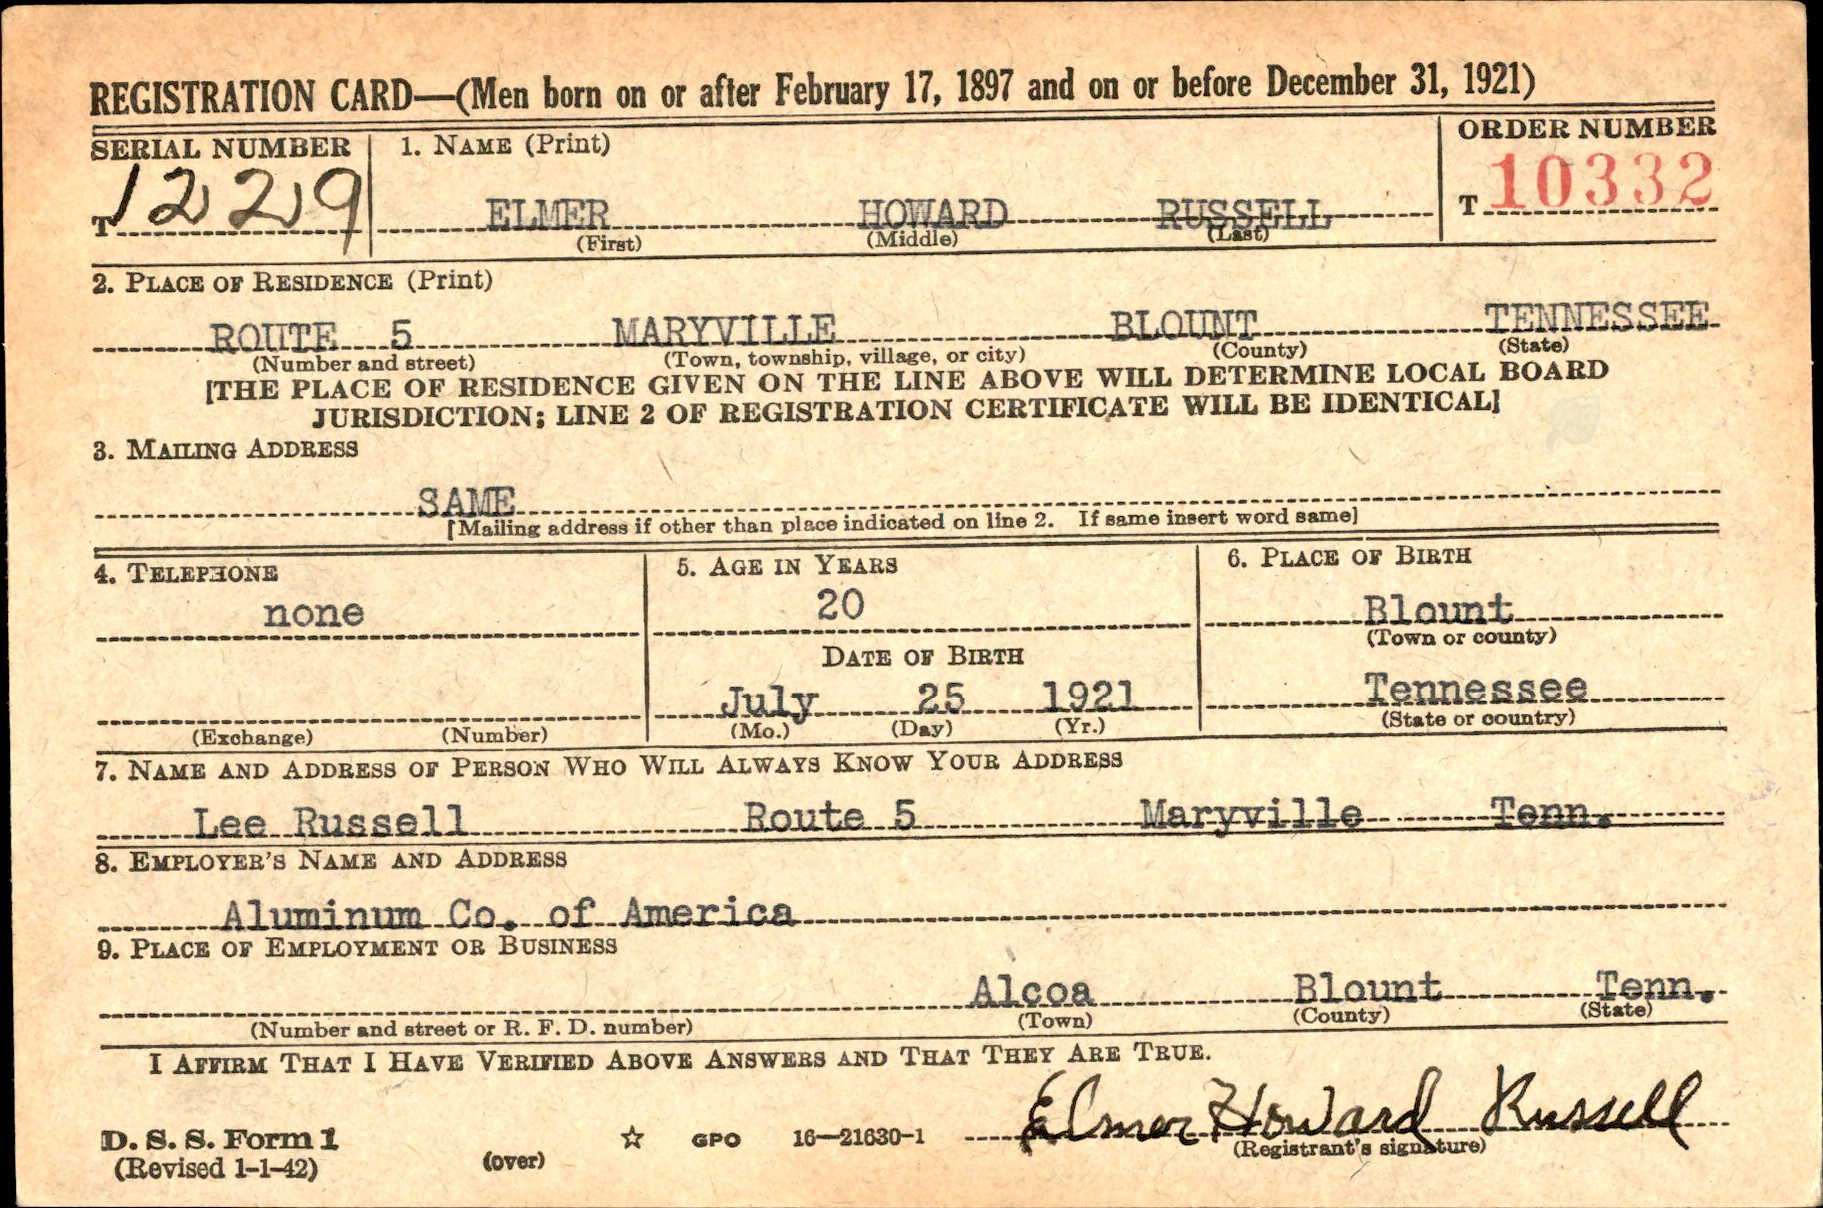 REGISTRATION CARD—(Men born on or after February 17, 1897 and on or before December 31, 1921)
SERIAL NUMBER 1. NAME (Print) ORDER NUMBER
T 1229 ELMER HOWARD RUSSELL T 10332
(First) (Middle) (Last)
2. PLACE OF RESIDENCE (Print)
ROUTE 5 MARYVILLE BLOUNT TENNESSEE
(Number and street) (Town, township, village, or city) (County) (State)
[THE PLACE OF RESIDENCE GIVEN ON THE LINE ABOVE WILL DETERMINE LOCAL BOARD
JURISDICTION; LINE 2 OF REGISTRATION CERTIFICATE WILL BE IDENTICAL]
3. MAILING ADDRESS
SAME
[Mailing address if other than place indicated on line 2. If same insert word same]
4. TELEPHONE 5. AGE IN YEARS 6. PLACE OF BIRTH
none 20 Blount
(Town or county)
DATE OF BIRTH
July 25 1921 Tennessee
(Exchange) (Number) (Mo.) (Day) (Yr.) (State or country)
7. NAME AND ADDRESS OF PERSON WHO WILL ALWAYS KNOW YOUR ADDRESS
Lee Russell Route 5 Maryville Tenn.
8. EMPLOYER'S NAME AND ADDRESS
Aluminum Co. of America
9. PLACE OF EMPLOYMENT OR BUSINESS
Alcoa Blount Tenn.
(Number and street or R. F. D. number) (Town) (County) (State)
I AFFIRM THAT I HAVE VERIFIED ABOVE ANSWERS AND THAT THEY ARE TRUE.
Elmer Howard Russell
D. S. S. Form 1 ☆ GPO 16—21630-1 (Registrant's signature)
(Revised 1-1-42) (over)